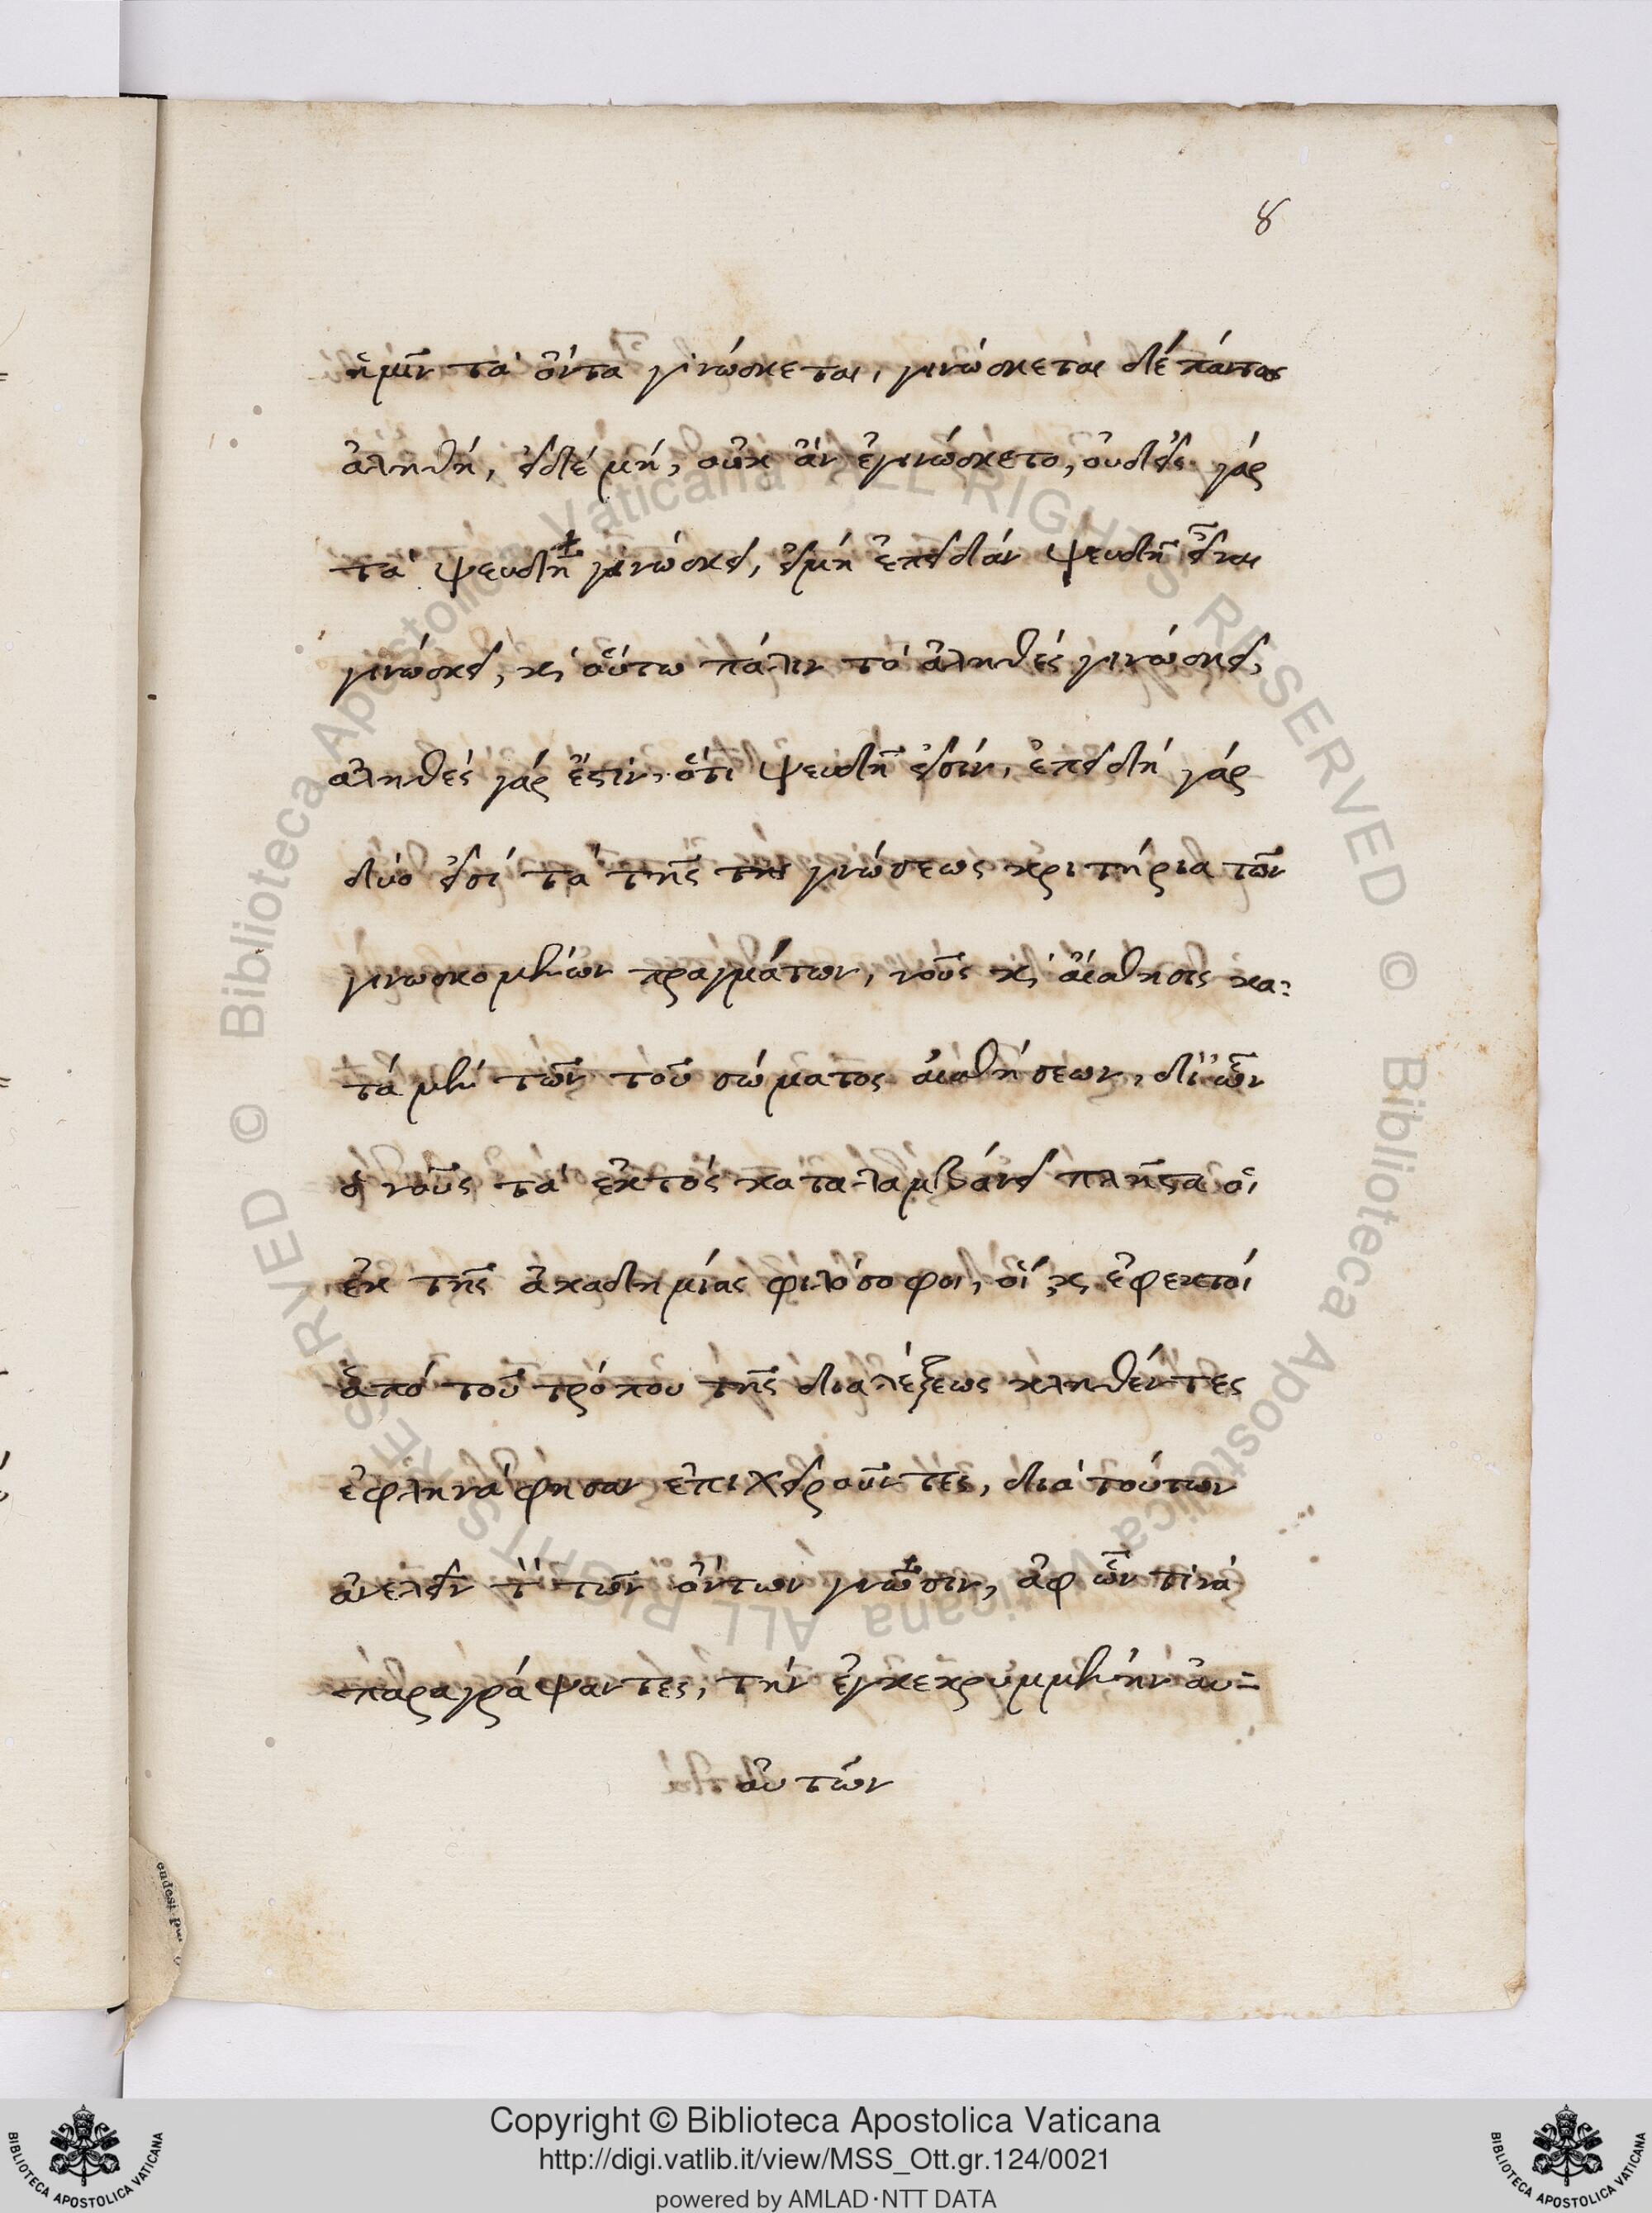 8
ἡμῖν τὰ ὄντα γινώσκεται, γινώσκεται δέ πάντως
ἀληθή, εἰ δέ μή, οὐκ ἂν ἐγινώσκετο, οὐδείς γάρ
τὰ ψευδῆ γινώσκει, εἰ μή ἐπειδάν ψευδῆ εἶναι
γινώσκει, κ οὕτω πάλιν τὸ ἀληθές γινώσκει,
ἀληθές γάρ ἔστιν, ὅτι ψευδῆ εἰσίν, ἐπειδή γάρ
δύο εἰσί τὰ τῆς γνώσεως κριτήρια τῶν
γινωσκομένων πραγμάτων, νοῦς κ αἴσθησις κα=
τά μέν τῶν τοῦ σώματος αἰσθήσεων, δι' ὧν
ὁ νοῦς τὰ ἐκτός καταλαμβάνει πλῆστα οἱ
ἐκ τῆς ἀκαδημίας φιλόσοφοι, οἵ κ ἐφεκτοί
ἀπό τοῦ τρόπου τῆς διαλέξεως κληθέντες
ἐφληνάφησαν ἐπιχειροῦντες, διά τούτων
ἀνελεῖν τὴν τῶν ὄντων γνῶσιν, ἀφ ὧν τινά
παραγράψαντες, τήν ἐγκεκρυμμένην αὐ=
αὐτῶν
© Biblioteca Apostolica Vaticana ALL RIGHTS RESERVED © Biblioteca Apostolica Vaticana ALL RIGHTS RESERVED
Copyright © Biblioteca Apostolica Vaticana
http://digi.vatlib.it/view/MSS_Ott.gr.124/0021
powered by AMLAD·NTT DATA
BIBLIOTECA APOSTOLICA VATICANA
BIBLIOTECA APOSTOLICA VATICANA